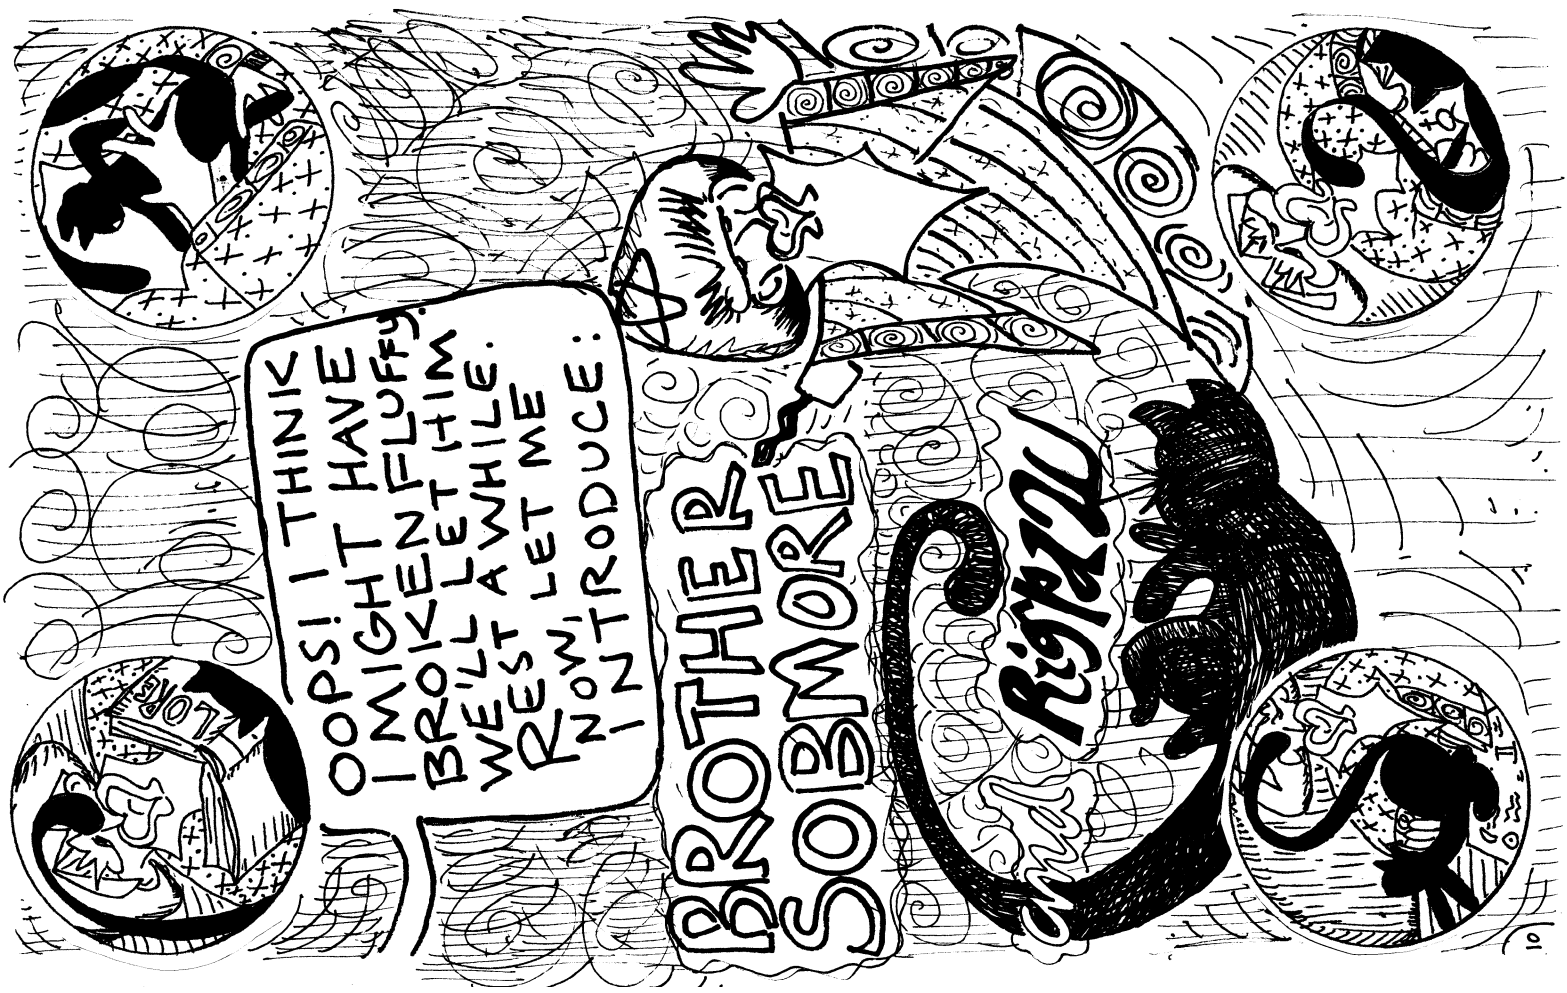 OOPS! I THINK
I MIGHT HAVE
BROKEN FLUFFY.
WE'LL LET HIM
REST A WHILE.
NOW, LET ME
INTRODUCE:
BROTHER
SOBMORE
and
10